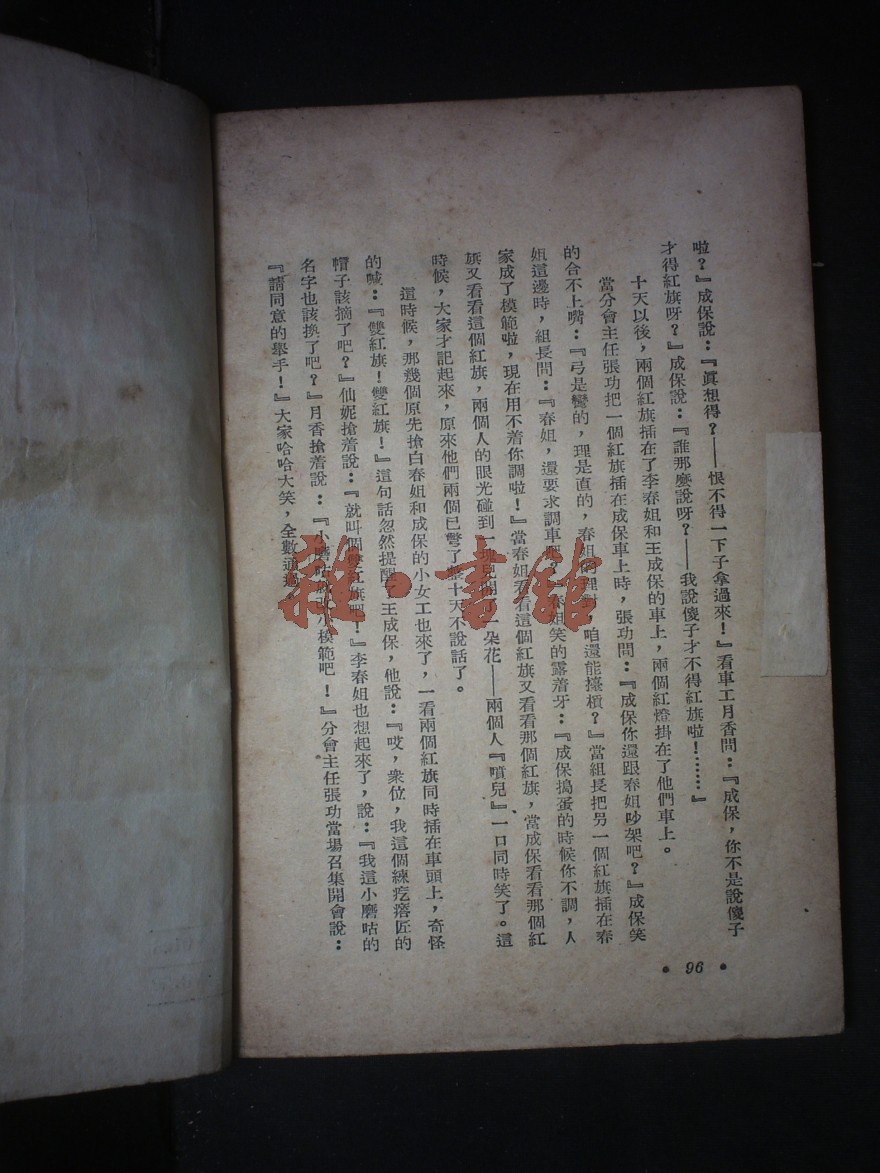 啦?』成保說:『眞想得?——恨不得一下子拿過來!』看車工月香問:『成保,你不是說傻子
才得紅旗呀?』成保說:『誰那麽說呀?——我說傻子才不得紅旗啦!………』
十天以後,兩個紅旗插在了李春姐和王成保的車上,兩個紅燈掛在了他們車上。
當分會主任張功把一個紅旗插在成保車上時,張功問:『成保你還跟春姐吵架吧?』成保笑
的合不上嘴:『弓是彎的,理是直的,春姐 理對,咱還能擡槓?』當組長把另一個紅旗插在春
姐這邊時,組長問:『春姐,還要求調車吧?』春姐笑的露着牙:『成保搗蛋的時候你不調,人
家成了模範啦,現在用不着你調啦!』當春姐看看這個紅旗又看看那個紅旗,當成保看看那個紅
旗又看看這個紅旗,兩個人的眼光碰到一塊兒開了一朵花——兩個人『噴兒』一口同時笑了。這
時候,大家才記起來,原來他們兩個已彆了整十天不說話了。
這時候,那幾個原先搶白春姐和成保的小女工也來了,一看兩個紅旗同時插在車頭上,奇怪
的喊:『雙紅旗!雙紅旗!』這句話忽然提醒了王成保,他說:『哎,衆位,我這個練疙瘩匠的
帽子該摘了吧?』仙妮搶着說:『就叫個雙紅旗吧!』李春姐也想起來了,說:『我這小磨咕的
名字也該換了吧?』月香搶着說:『小磨咕 小模範吧!』分會主任張功當場召集開會說:
『請同意的舉手!』大家哈哈大笑,全數通過。
• 96 •
雜·書館